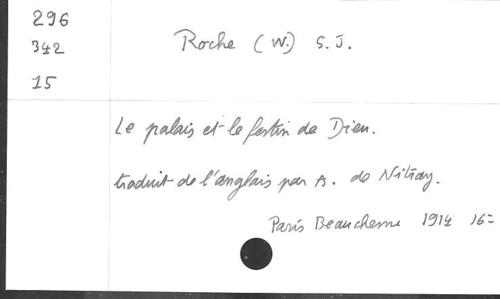 296
342
15
Roche (W.) S.J.
Le palais et le festin de Dieu.
traduit de l'anglais par A. de Nitray.
Paris Beauchesne 1914 16=